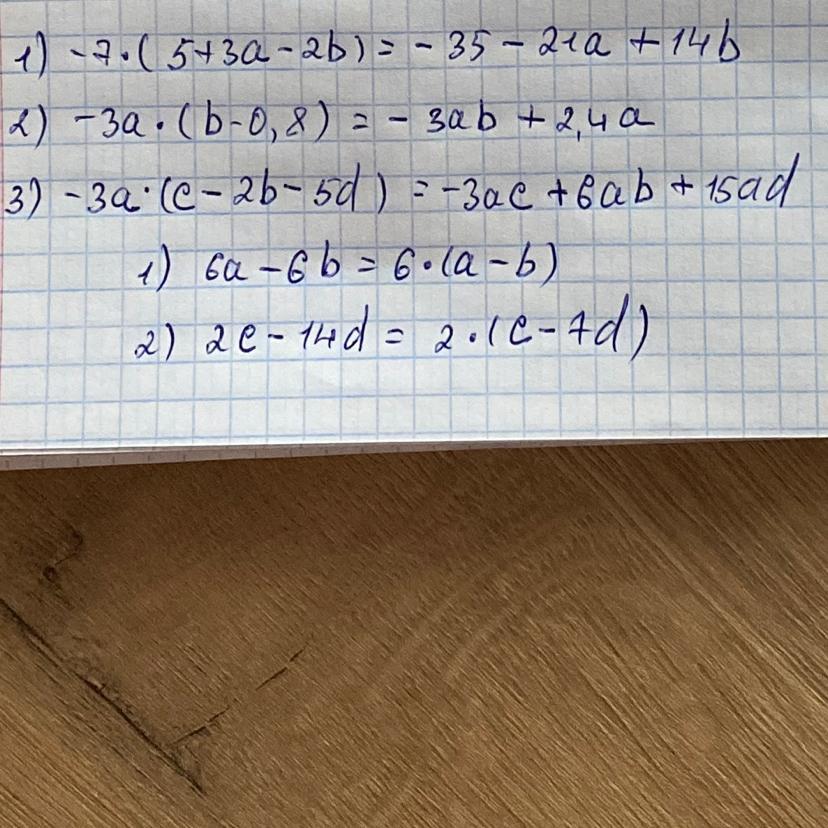 1) -7·(5+3a-2b)=-35-21a+14b
2) -3a·(b-0,8)=-3ab+2,4a
3) -3a·(c-2b-5d)=-3ac+6ab+15ad
1) 6a-6b=6·(a-b)
2) 2c-14d=2·(c-7d)